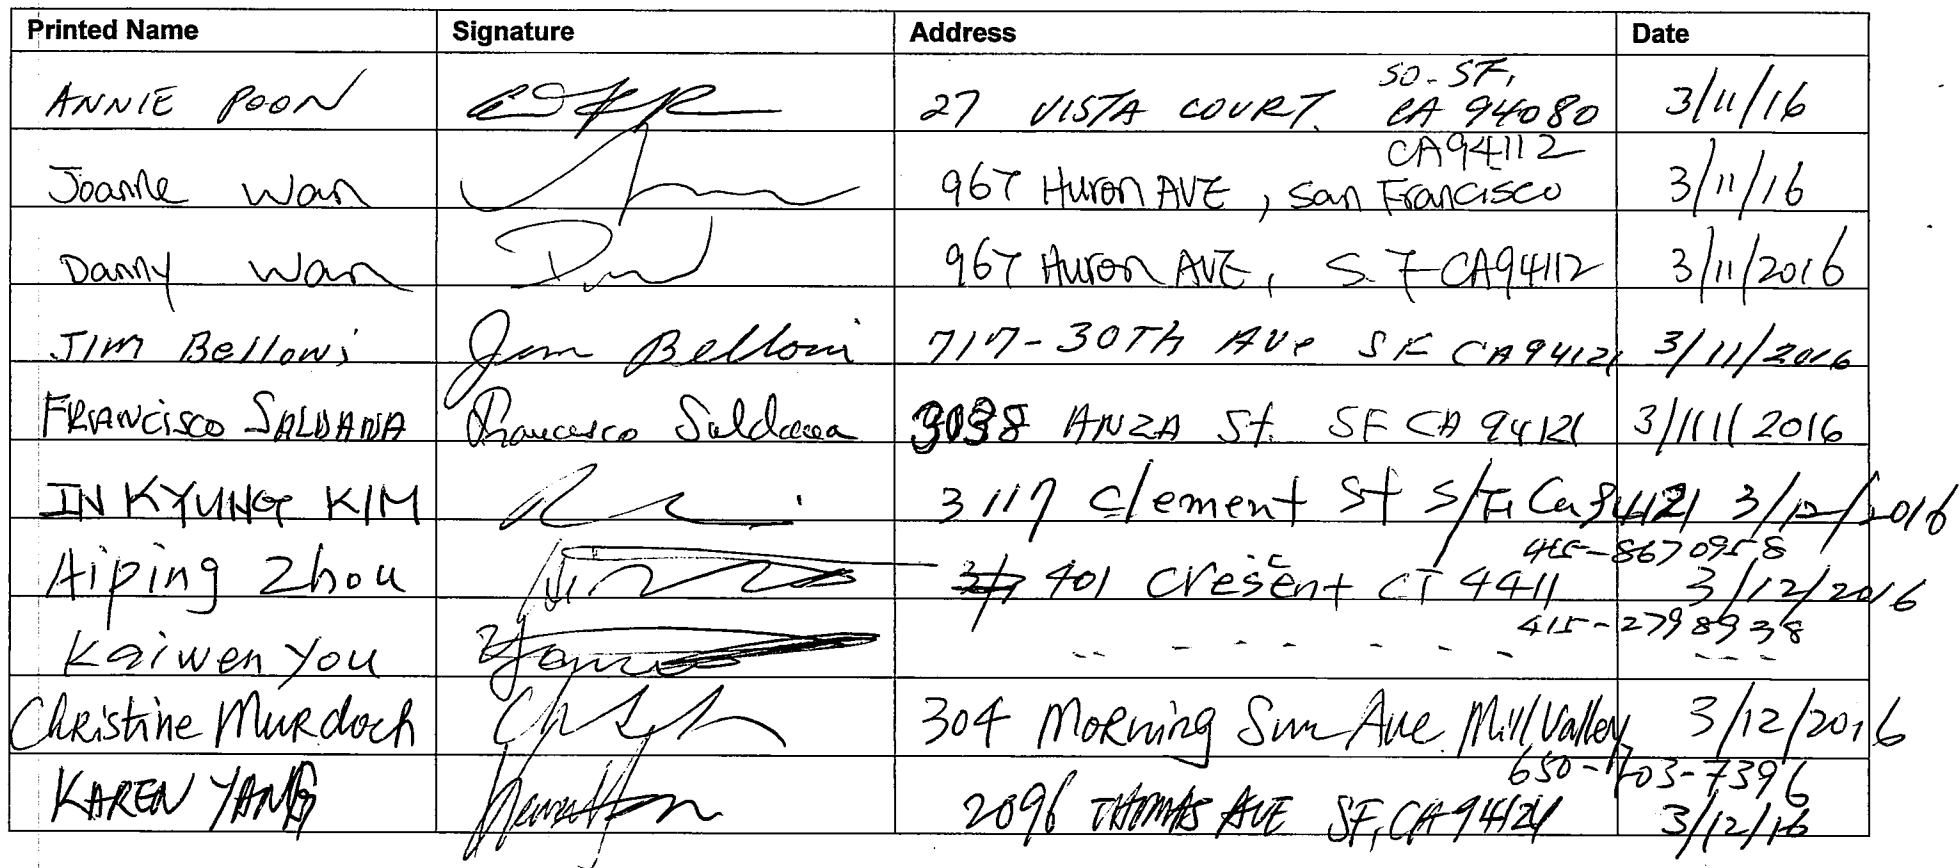 Printed Name Signature Address Date
ANNIE POON 27 VISTA COURT. SO-SF, CA 94080 3/11/16
Joanne Wan 967 Huron AVE, San Francisco CA94112 3/11/16
Danny Wan 967 Huron AVE, S.F CA94112 3/11/2016
Jim Belloni Jim Belloni 717-30Th AVe SF CA94121 3/11/2016
FRANCISCO SALDANA Francisco Saldana 3038 ANZA St. SF CA 94121 3/11/2016
IN KYUNG KIM 3117 Clement St S/F, Ca 94121 3/12/2016
Aiping Zhou 401 Cresent CT 4411 415-8670958 3/12/2016
Kaiwen You 415-2798938
Christine Murdoch 304 Morning Sun Ave. Mill Valley 3/12/2016
KAREN YANG 2096 THOMAS AVE SF, CA 94124 650-703-7396 3/12/16